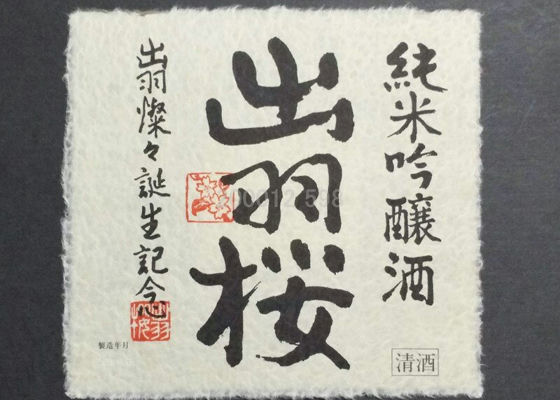 純米吟醸酒
出羽桜
出羽燦々誕生記念
出羽桜
製造年月
清酒